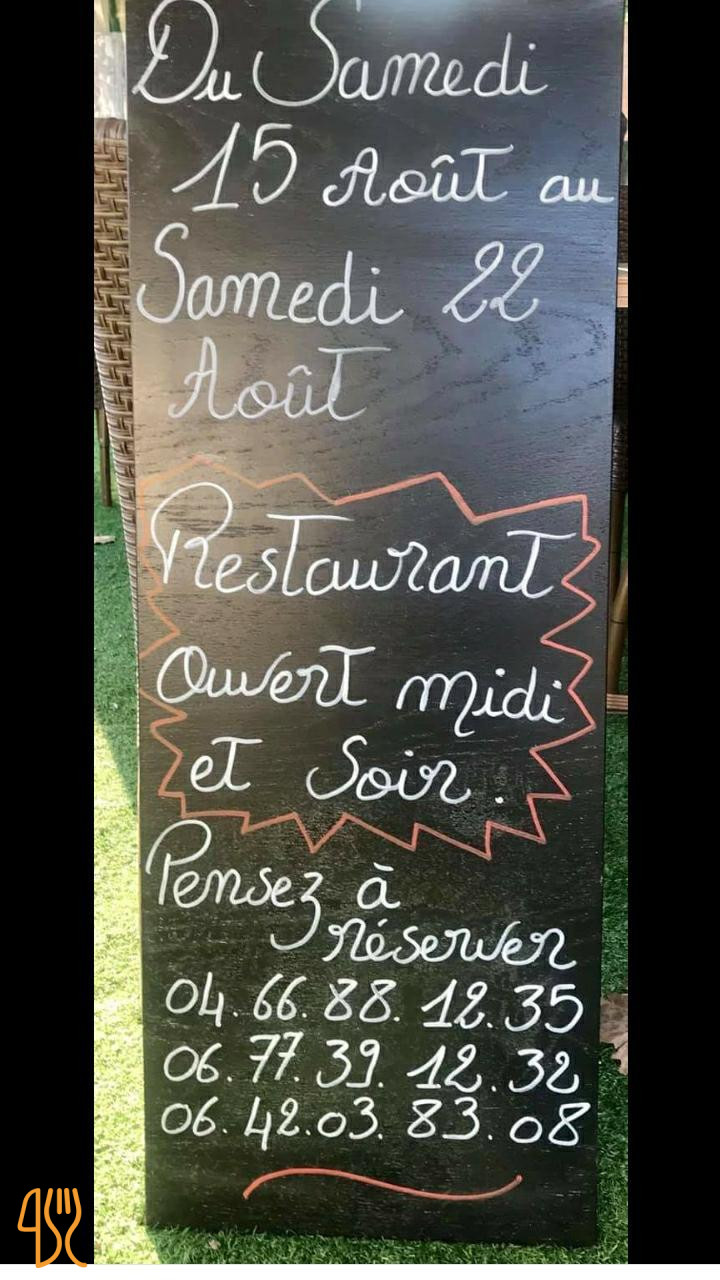 Du Samedi
15 Août au
Samedi 22
Août
Restaurant
Ouvert midi
et Soir.
Pensez à
réserver
04.66.88.12.35
06.77.39.12.32
06.42.03.83.08